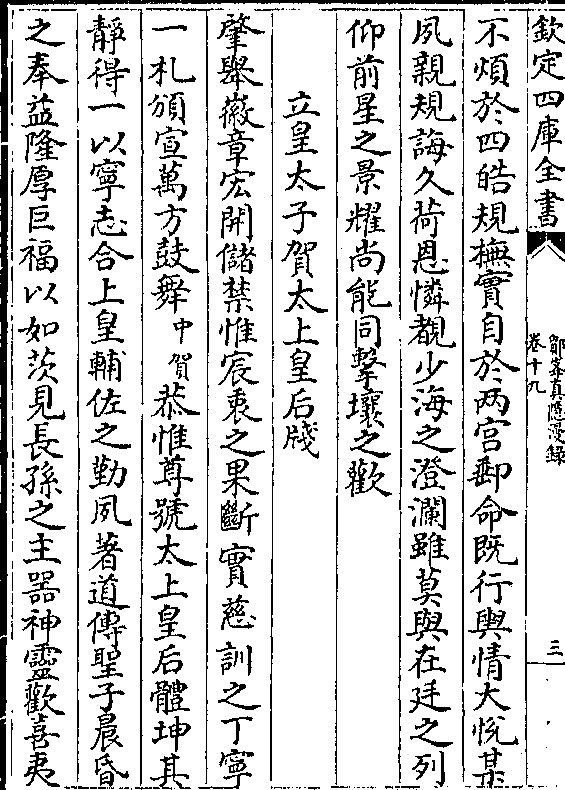 欽定四庫全書
鄮峯真隱漫錄
卷十九
三
不煩於四皓規撫實自於兩宮郵命既行輿情大悅某
夙親規誨久荷恩憐覩少海之澄瀾雖莫與在廷之列
仰前星之景耀尚能同擊壤之歡
立皇太子賀太上皇后牋
肇舉徽章宏開儲禁惟宸衷之果斷實慈訓之丁寧
一札頒宣萬方鼓舞中賀恭惟尊號太上皇后體坤其
靜得一以寧志合上皇輔佐之勤夙著道傳聖子晨昏
之奉益隆厚巨福以如茨見長孫之主器神靈歡喜夷